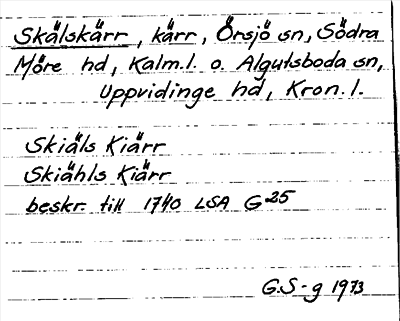 Skälskärr, kärr, Örsjö sn, Södra
Möre hd, Kalm.l. o. Algutsboda sn,
Uppvidinge hd, Kron.l.
Skiäls Kiärr
Skiähls Kiärr
beskr. till 1740 LSA G25
G.S-g 1973